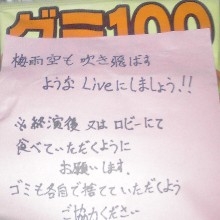 グミ100
梅雨空も吹き飛ばす
ようなLiveにしましょう!!
※終演後 又は ロビーにて
食べていただくように
お願いします。
ゴミも各自で捨てていただくよう
ご協力ください